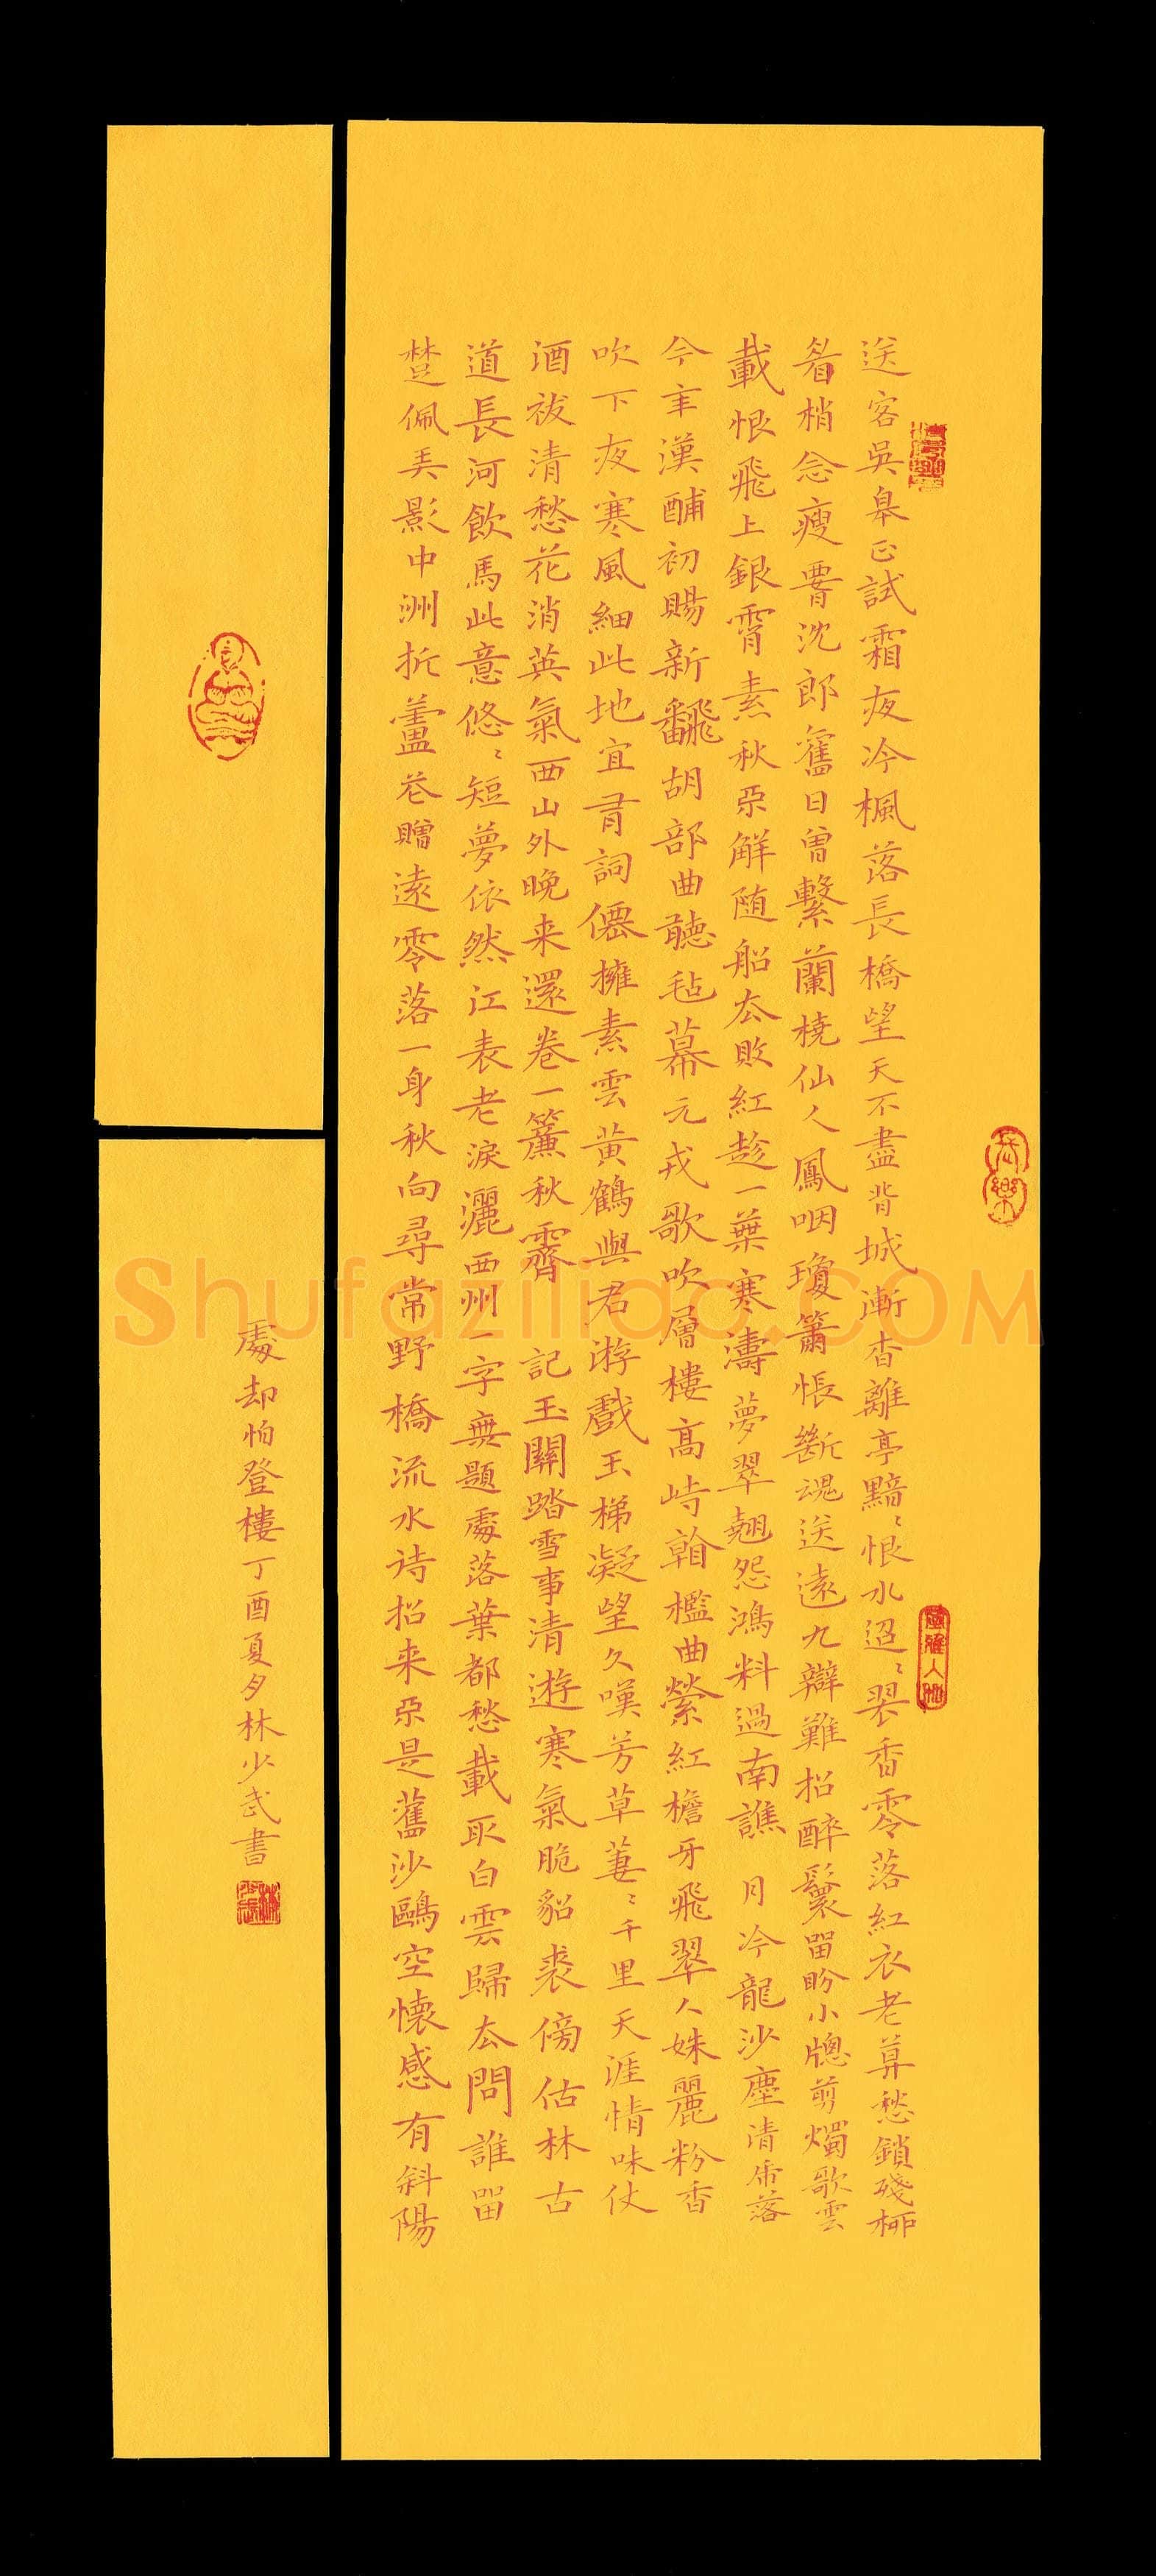 送客吳皋正試霜夜冷楓落長橋望天不盡背城漸杳離亭黯〻恨水迢〻翠香零落紅衣老莫愁鎖殘柳
眉梢念瘦腰沈郎舊日曾繫蘭橈仙人鳳咽瓊簫悵斷魂送遠九辯難招醉鬟留盼小窗剪燭歌雲
載恨飛上銀霄素秋不解隨船去敗紅趁一葉寒濤夢翠翹怨鴻料過南譙 月冷龍沙塵清虎落
今年漢酺初賜新飜胡部曲聽毡幕元戎歌吹層樓高峙看檻曲縈紅檐牙飛翠人姝麗粉香
吹下夜寒風細此地宜有詞僊擁素雲黃鶴與君游戲玉梯凝望久嘆芳草萋〻千里天涯情味仗
酒祓清愁花消英氣西山外晚来還卷一簾秋霽 記玉關踏雪事清遊寒氣脆貂裘傍估林古
道長河飲馬此意悠〻短夢依然江表老淚灑西州一字無題處落葉都愁載取白雲歸去問誰留
楚佩弄影中洲折蘆花贈遠零落一身秋向尋常野橋流水待招来不是舊沙鷗空懷感有斜陽
處却怕登樓丁酉夏夕林少武書
Shufaziliao.COM